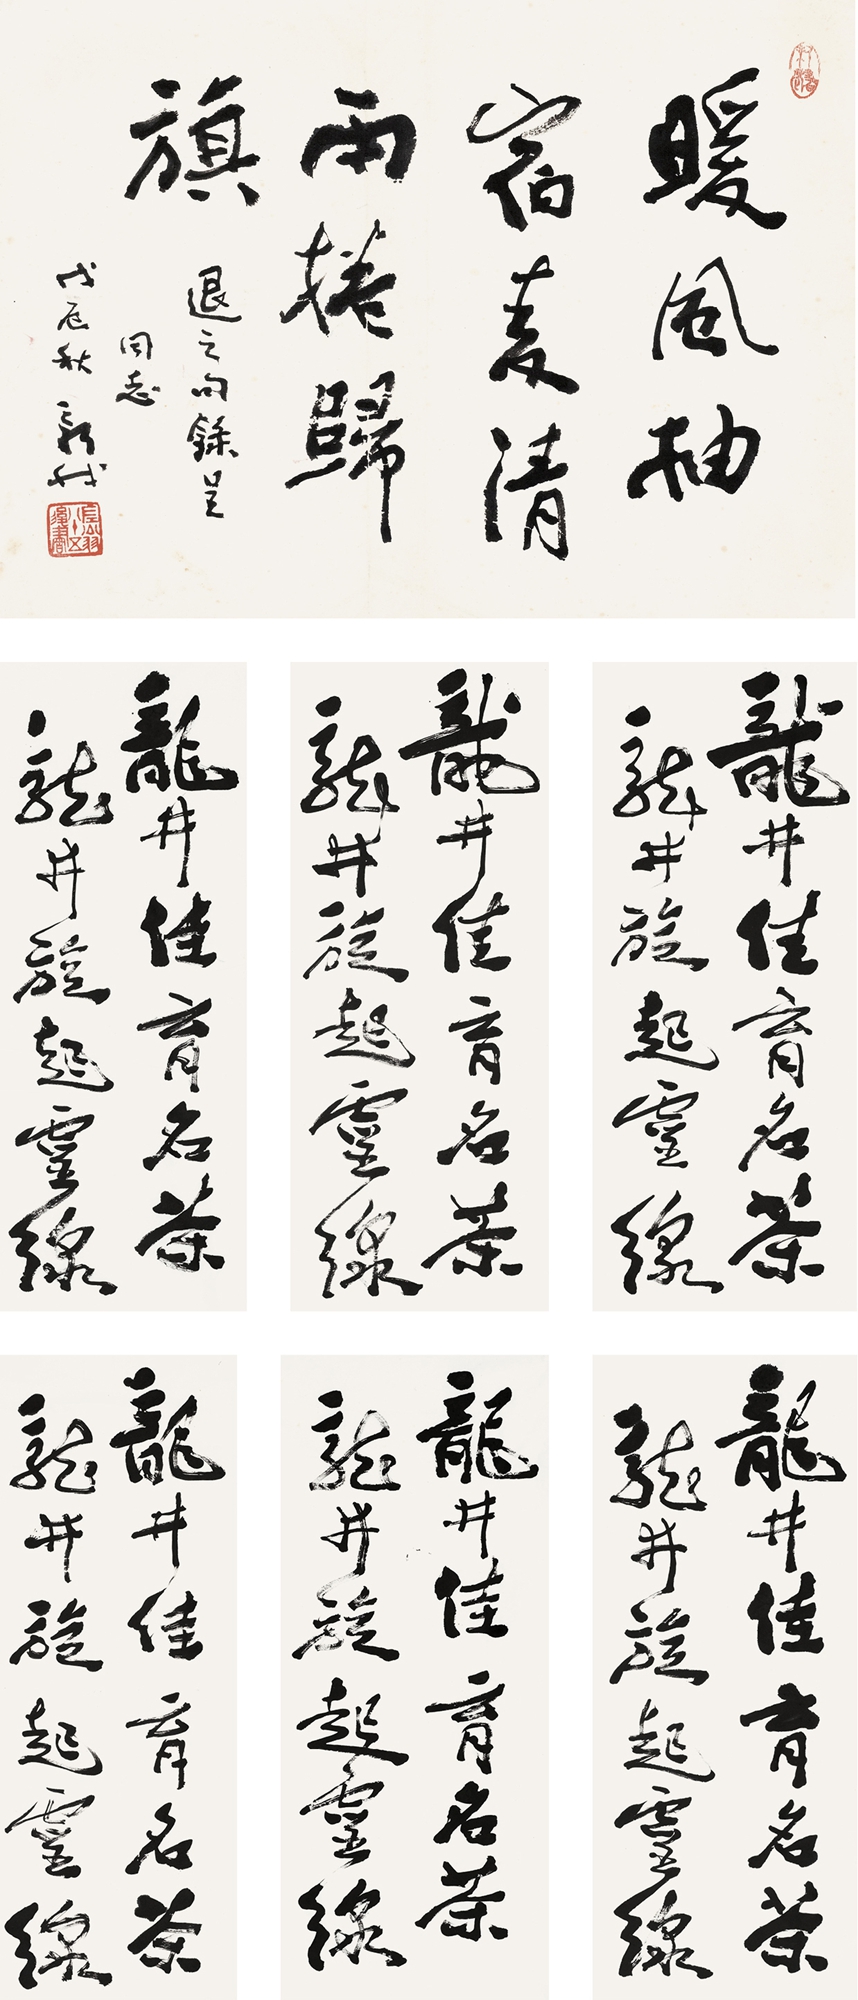 暖風抽
宿麥清
雨捲歸
旗
退之句錄呈
同志
戊辰秋 新我
龍井佳育名茶
龍井旋起靈線
龍井佳育名茶
龍井旋起靈線
龍井佳育名茶
龍井旋起靈線
龍井佳育名茶
龍井旋起靈線
龍井佳育名茶
龍井旋起靈線
龍井佳育名茶
龍井旋起靈線